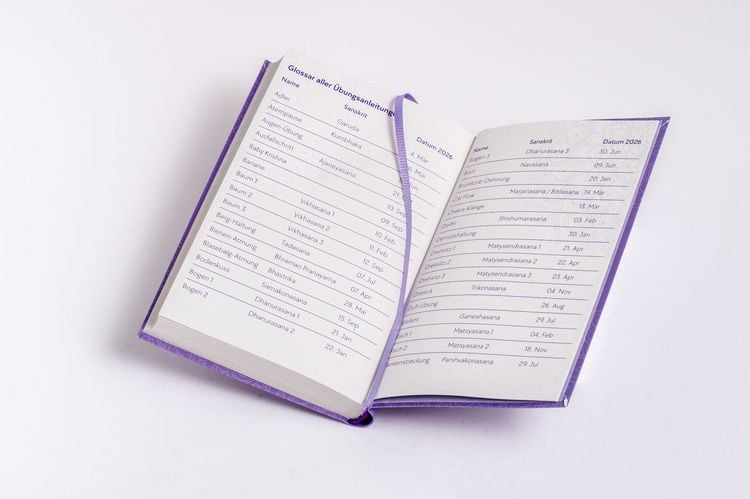 Glossar aller Übungsanleitungen
Name Sanskrit Datum 2026
Adler Garuda 4. Mär
Atempause Kumbhaka
Augen-Übung Jun
Ausfallschritt Ajaneyasana 21. Jul
Baby Krishna 10. Sep
Banane 09. Sep
Baum 1 Vrkhasana 1 10. Feb
Baum 2 Vrkhasana 2 11. Feb
Baum 3 Vrkhasana 3 12. Sep
Berg-Haltung Tadasana 07. Jul
Bienen-Atmung Bhramari Pranayama 07. Apr
Blasebalg-Atmung Bhastrika 28. Mai
Bodenkuss Samakonasana 15. Sep
Bogen 1 Dhanurasana 1 21. Jan
Bogen 2 Dhanurasana 2 22. Jan
Name Sanskrit Datum 2026
Bogen 3 Dhanurasana 3 30. Jun
Boot Navasana 09. Jun
Brustkorb-Dehnung 20. Jan
Cat Flow Marjariasana / Bitilasana 19. Mär
Chakra-Klänge 13. Mär
Delfin Shishumarasana 03. Feb
Demutshaltung 30. Jan
Drehsitz 1 Matysendrasana 1 21. Apr
Drehsitz 2 Matysendrasana 2 22. Apr
Drehsitz 3 Matysendrasana 3 23. Apr
Dreieck Trikonasana 04. Nov
Duft-Übung 26. Aug
Ganeshasana 29. Jul
1 Matsyasana 1 04. Feb
2 Matsyasana 2 18. Nov
Parshvakonasana 29. Jul